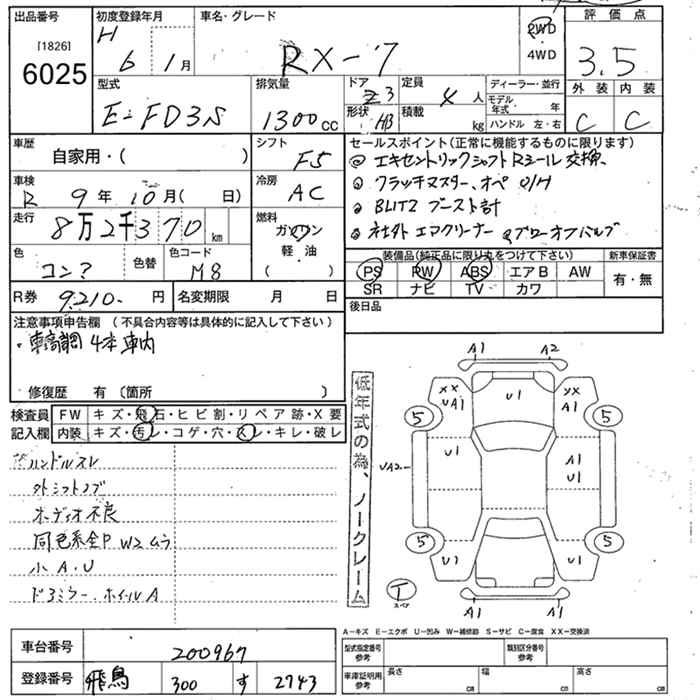 出品番号
[1826]
6025
初度登録年月
H
6 1月
車名・グレード
RX-7
2WD
4WD
評価点
3.5
外装 内装
C C
型式
E-FD3S
排気量
1300cc
ドア
3
形状
HB
定員
4人
積載
kg
ディーラー・並行
モデル年式 年
ハンドル 左・右
車歴
自家用・( )
シフト
F5
車検
R 9年10月( 日)
冷房
AC
走行
8万2千370km
燃料
ガソリン
軽油
( )
色
コン?
色替
色コード
M8
R券 9210- 円
名変期限 月 日
セールスポイント(正常に機能するものに限ります)
エキセントリックシャフトRシール交換、
クラッチマスター、オペ O/H
BLITZ ブースト計
社外エアクリーナー ブローオフバルブ
装備品(純正品に限り丸をつけて下さい)
PS PW ABS エアB AW
SR ナビ TV カワ
新車保証書
有・無
後日品
注意事項申告欄 (不具合内容等は具体的に記入して下さい)
・車高調 4本車内
修復歴 有 (箇所 )
検査員
記入欄
FW キズ・飛石・ヒビ割・リペア跡・X要
内装 キズ・汚レ・コゲ・穴・スレ・キレ・破レ
ハンドルスレ
外シフトノブ
オーディオ不良
同色系全P W2ムラ
小A.U
ドアミラー、ホイールA
低年式の為、ノークレーム
A1 A2
XX UA1
U1
XX A1
5 5
U1
A1 U1
UA2
5 5
U1 U1
T
スペア
A1 A1
A-キズ E-エクボ U-凹み W-補修跡 S-サビ C-腐食 XX-交換済
車台番号 200967
登録番号 飛鳥 300 す 2743
型式指定番号
参考
類別区分番号
参考
車庫証明用
参考
長さ cm
幅 cm
高さ cm